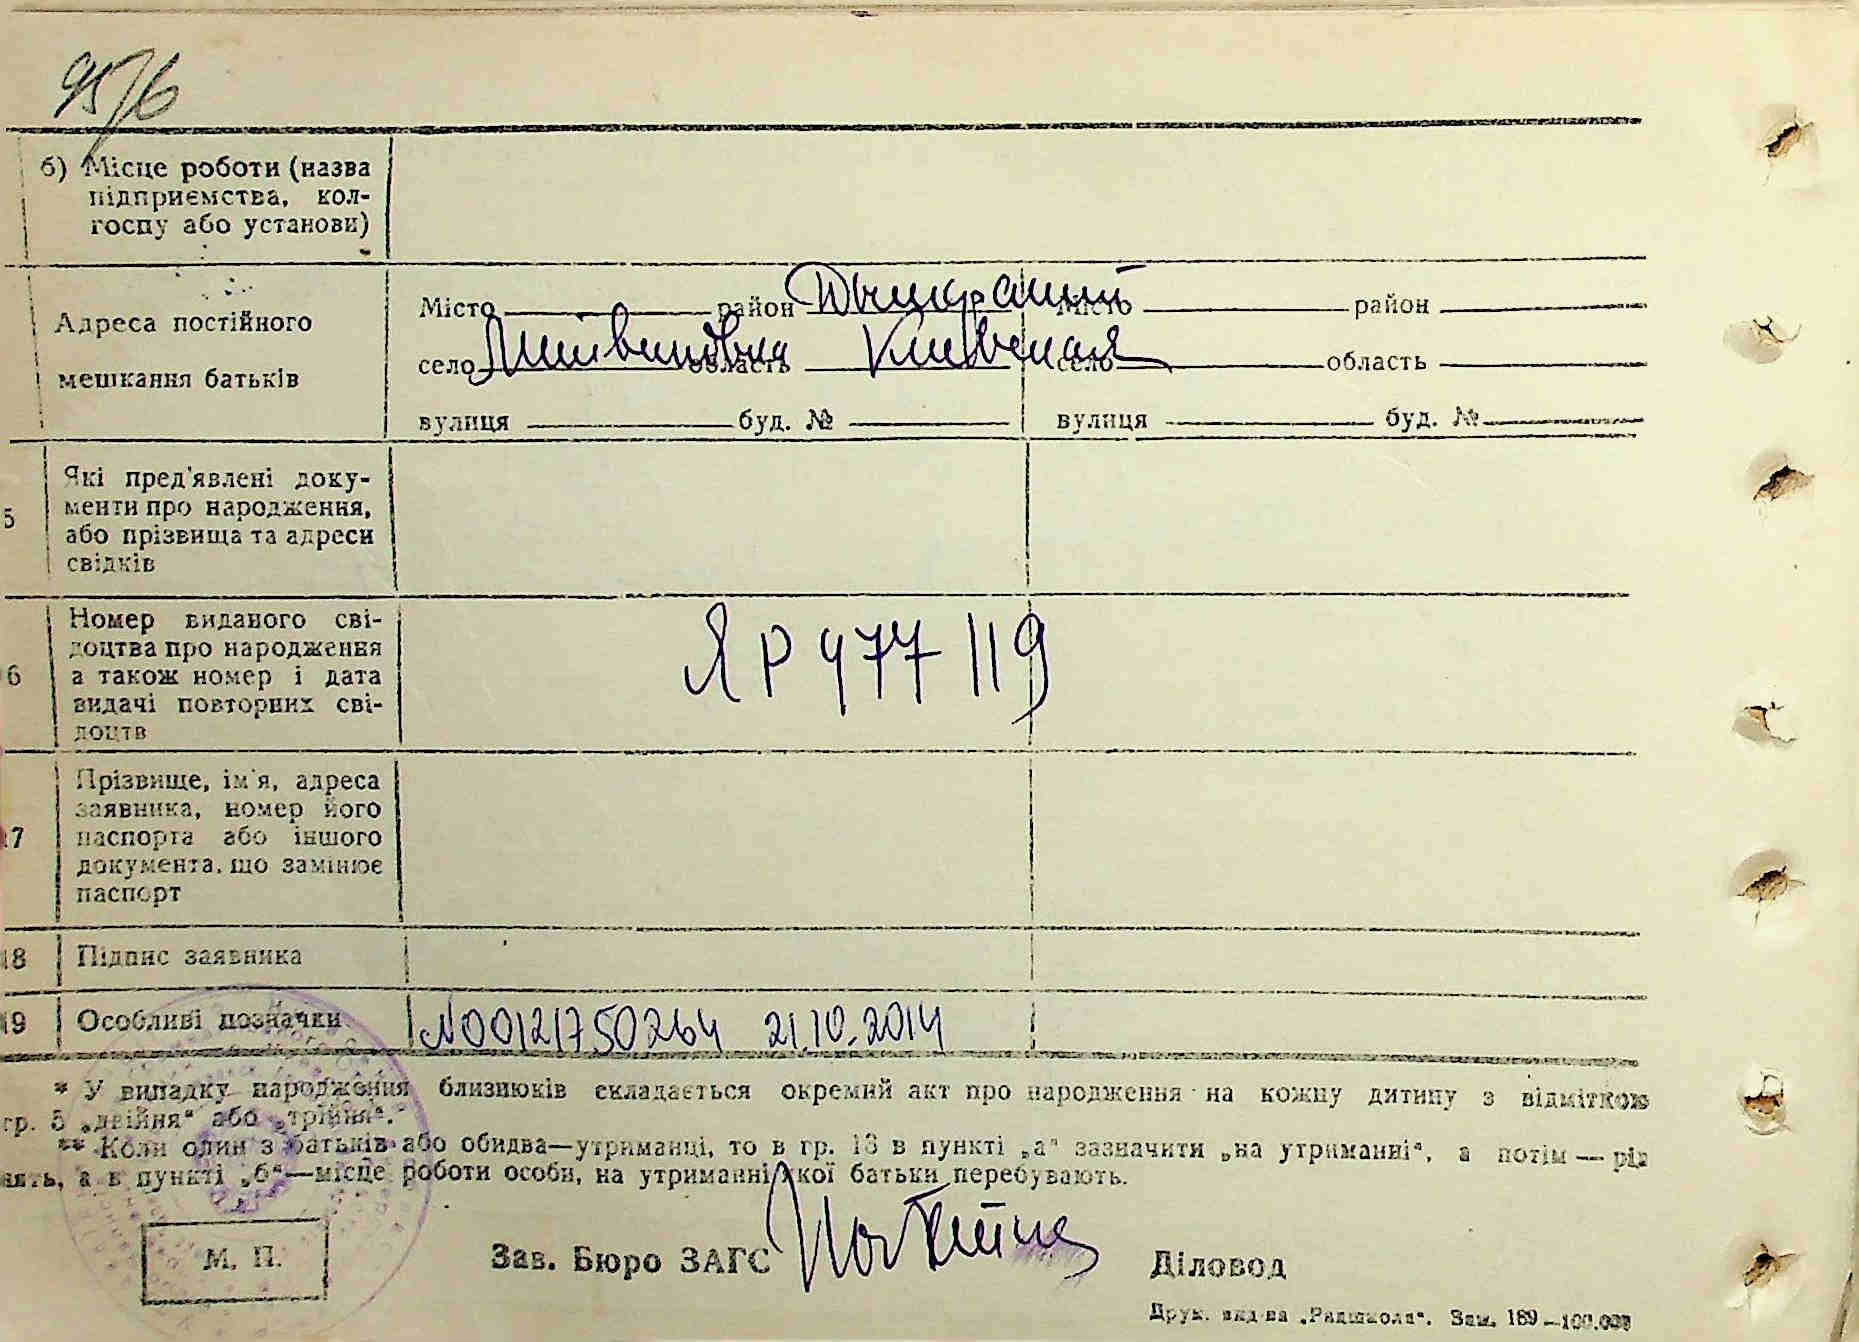 95/6
б) Місце роботи (назва
підприємства, кол-
госпу або установи)
Адреса постійного
мешкання батьків
Місто район Дымерский Місто район
село Литвиновка область Киевская село область
вулиця буд. № вулиця буд. №
5 Які пред'явлені доку-
менти про народження,
або прізвища та адреси
свідків
6 Номер виданого сві-
доцтва про народження
а також номер і дата
видачі повторних сві-
доцтв
ЯР 477119
17 Прізвище, ім'я, адреса
заявника, номер його
паспорта або іншого
документа, що замінює
паспорт
18 Підпис заявника
19 Особливі позначки №00121750264 21.10.2014
* У випадку народження близнюків складається окремий акт про народження на кожну дитину з відміткою
гр. 5 „двійня“ або „трійня“.
** Коли один з батьків або обидва—утриманці, то в гр. 13 в пункті „а“ зазначити „на утриманні“, а потім — рід
нять, а в пункті „б“—місце роботи особи, на утриманні якої батьки перебувають.
М. П.
Зав. Бюро ЗАГС
Діловод
Друк. вид-ва „Радшкола“. Зам. 189—100.000